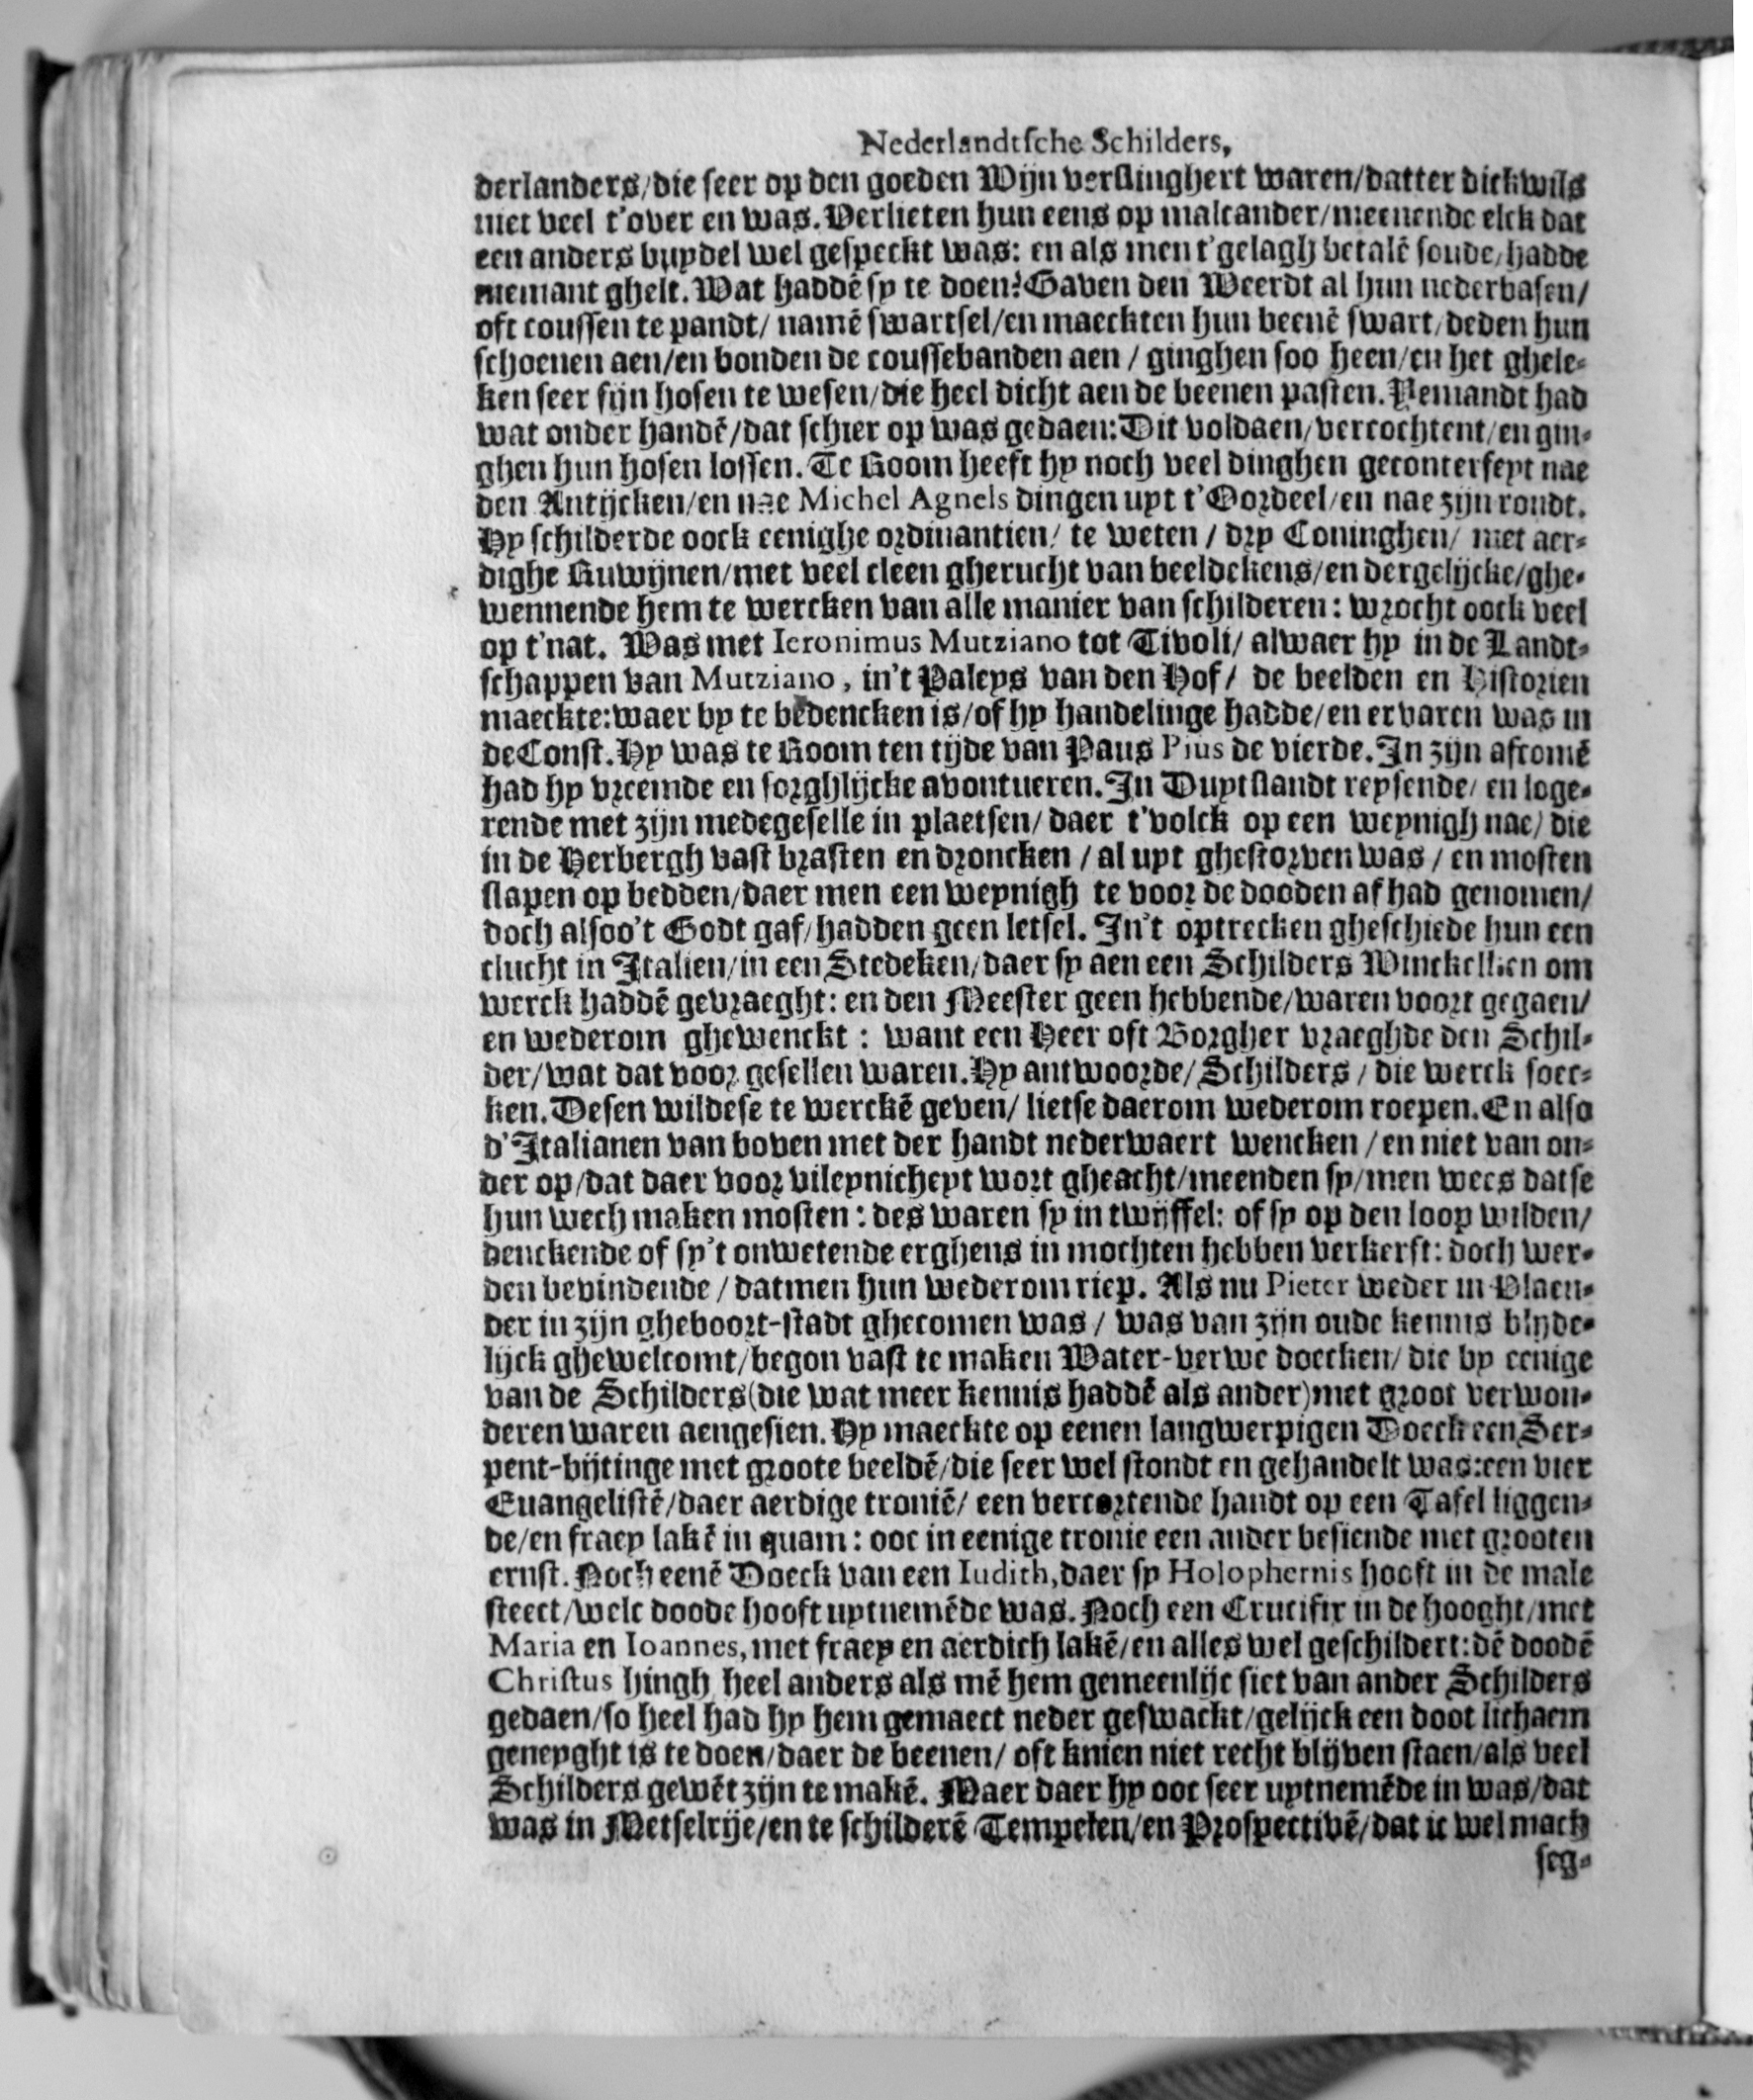 Nederlandtſche Schilders,
derlanders/die ſeer op den goeden Wijn verſlinghert waren/datter dickwils
niet veel t'over en was. Verlieten hun eens op malcander/meenende elck dat
een anders buydel wel geſpeckt was: en als men t'gelagh betalē ſoude/hadde
niemant ghelt. Wat haddē ſy te doen? Gaven den Weerdt al hun nederbaſen/
oft couſſen te pandt/ namē ſwartſel/en maeckten hun beenē ſwart/deden hun
ſchoenen aen/en bonden de couſſebanden aen / ginghen ſoo heen/en het ghele-
ken ſeer fijn hoſen te weſen/die heel dicht aen de beenen paſten. Yemandt had
wat onder handē/dat ſchier op was gedaen: Dit voldaen/vercochtent/en gin-
ghen hun hoſen loſſen. Te Room heeft hy noch veel dinghen geconterfeyt nae
den Antijcken/en nae Michel Agnels dingen uyt t'Oordeel/en nae zijn rondt.
Hy ſchilderde oock eenighe ordinantien/ te weten / dry Coninghen/ met aer-
dighe Ruwijnen/met veel cleen gherucht van beeldekens/en dergelijcke/ghe-
wennende hem te wercken van alle manier van ſchilderen: wrocht oock veel
op t'nat. Was met Ieronimus Mutziano tot Tivoli/ alwaer hy in de Landt-
ſchappen van Mutziano, in't Paleys van den Hof/ de beelden en Hiſtorien
maeckte: waer by te bedencken is/of hy handelinge hadde/en ervaren was in
de Conſt. Hy was te Room ten tijde van Paus Pius de vierde. In zijn afcomē
had hy vreemde en ſorghlijcke avontueren. In Duytſlandt reyſende/ en loge-
rende met zijn medegeſelle in plaetſen/ daer t'volck op een weynigh nae/ die
in de Herbergh vaſt braſten en droncken / al uyt gheſtorven was / en moſten
ſlapen op bedden/daer men een weynigh te voor de dooden af had genomen/
doch alſoo't Godt gaf/hadden geen letſel. In't optrecken gheſchiede hun een
clucht in Italien/in een Stedeken/daer ſy aen een Schilders Winckelken om
werck haddē gevraeght: en den Meeſter geen hebbende/waren voort gegaen/
en wederom ghewenckt : want een Heer oft Borgher vraeghde den Schil-
der/wat dat voor geſellen waren. Hy antwoorde/Schilders / die werck ſoec-
ken. Deſen wildeſe te werckē geven/ lietſe daerom wederom roepen. En alſo
d'Italianen van boven met der handt nederwaert wencken /en niet van on-
der op/dat daer voor vileynicheyt wort gheacht/meenden ſy/men wees datſe
hun wech maken moſten: des waren ſy in twijffel: of ſy op den loop wilden/
denckende of ſy't onwetende erghens in mochten hebben verkerft: doch wer-
den bevindende / datmen hun wederom riep. Als nu Pieter weder in Vlaen-
der in zijn gheboort-ſtadt ghecomen was / was van zijn oude kennis blijde-
lijck ghewelcomt/begon vaſt te maken Water-verwe doecken/ die by eenige
van de Schilders (die wat meer kennis haddē als ander) met groot verwon-
deren waren aengeſien. Hy maeckte op eenen langwerpigen Doeck een Ser-
pent-bijtinge met groote beeldē/die ſeer wel ſtondt en gehandelt was: een vier
Euangeliſtē/daer aerdige troniē/ een vercortende handt op een Tafel liggen-
de/en fraey lakē in quam: ooc in eenige tronie een ander beſiende met grooten
ernſt. Noch eenē Doeck van een Iudith, daer ſy Holophernis hooft in de male
ſteect/welc doode hooft uytnemēde was. Noch een Crucifix in de hooght/met
Maria en Ioannes, met fraey en aerdich lakē/en alles wel geſchildert: dē doodē
Chriſtus hingh heel anders als mē hem gemeenlijc ſiet van ander Schilders
gedaen/ſo heel had hy hem gemaect neder geſwackt/gelijck een doot lichaem
geneyght is te doen/daer de beenen/ oft knien niet recht blijven ſtaen/als veel
Schilders gewēt zijn te makē. Maer daer hy ooc ſeer uytnemēde in was/dat
was in Metſelrije/en te ſchilderē Tempelen/en Proſpectivē/dat ic wel mach
ſeg-